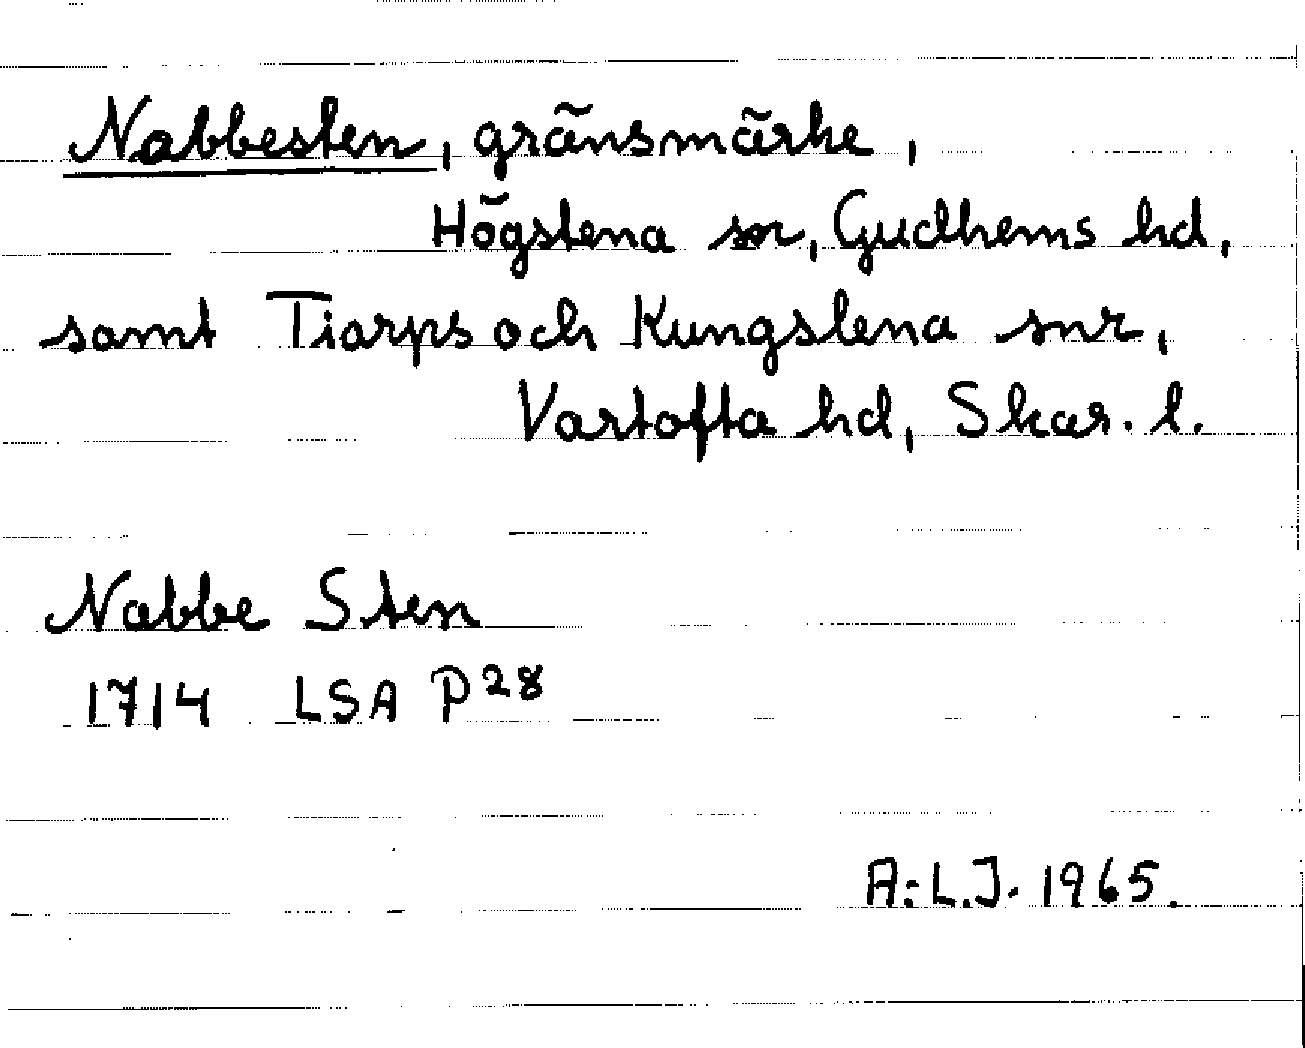 Nabbesten, gränsmärke,
Högstena sn, Gudhems hd,
samt Tiarps och Kungslena snr,
Vartofta hd, Skar. l.
Nabbe Sten
1714 LSA P28
A:L.J. 1965.